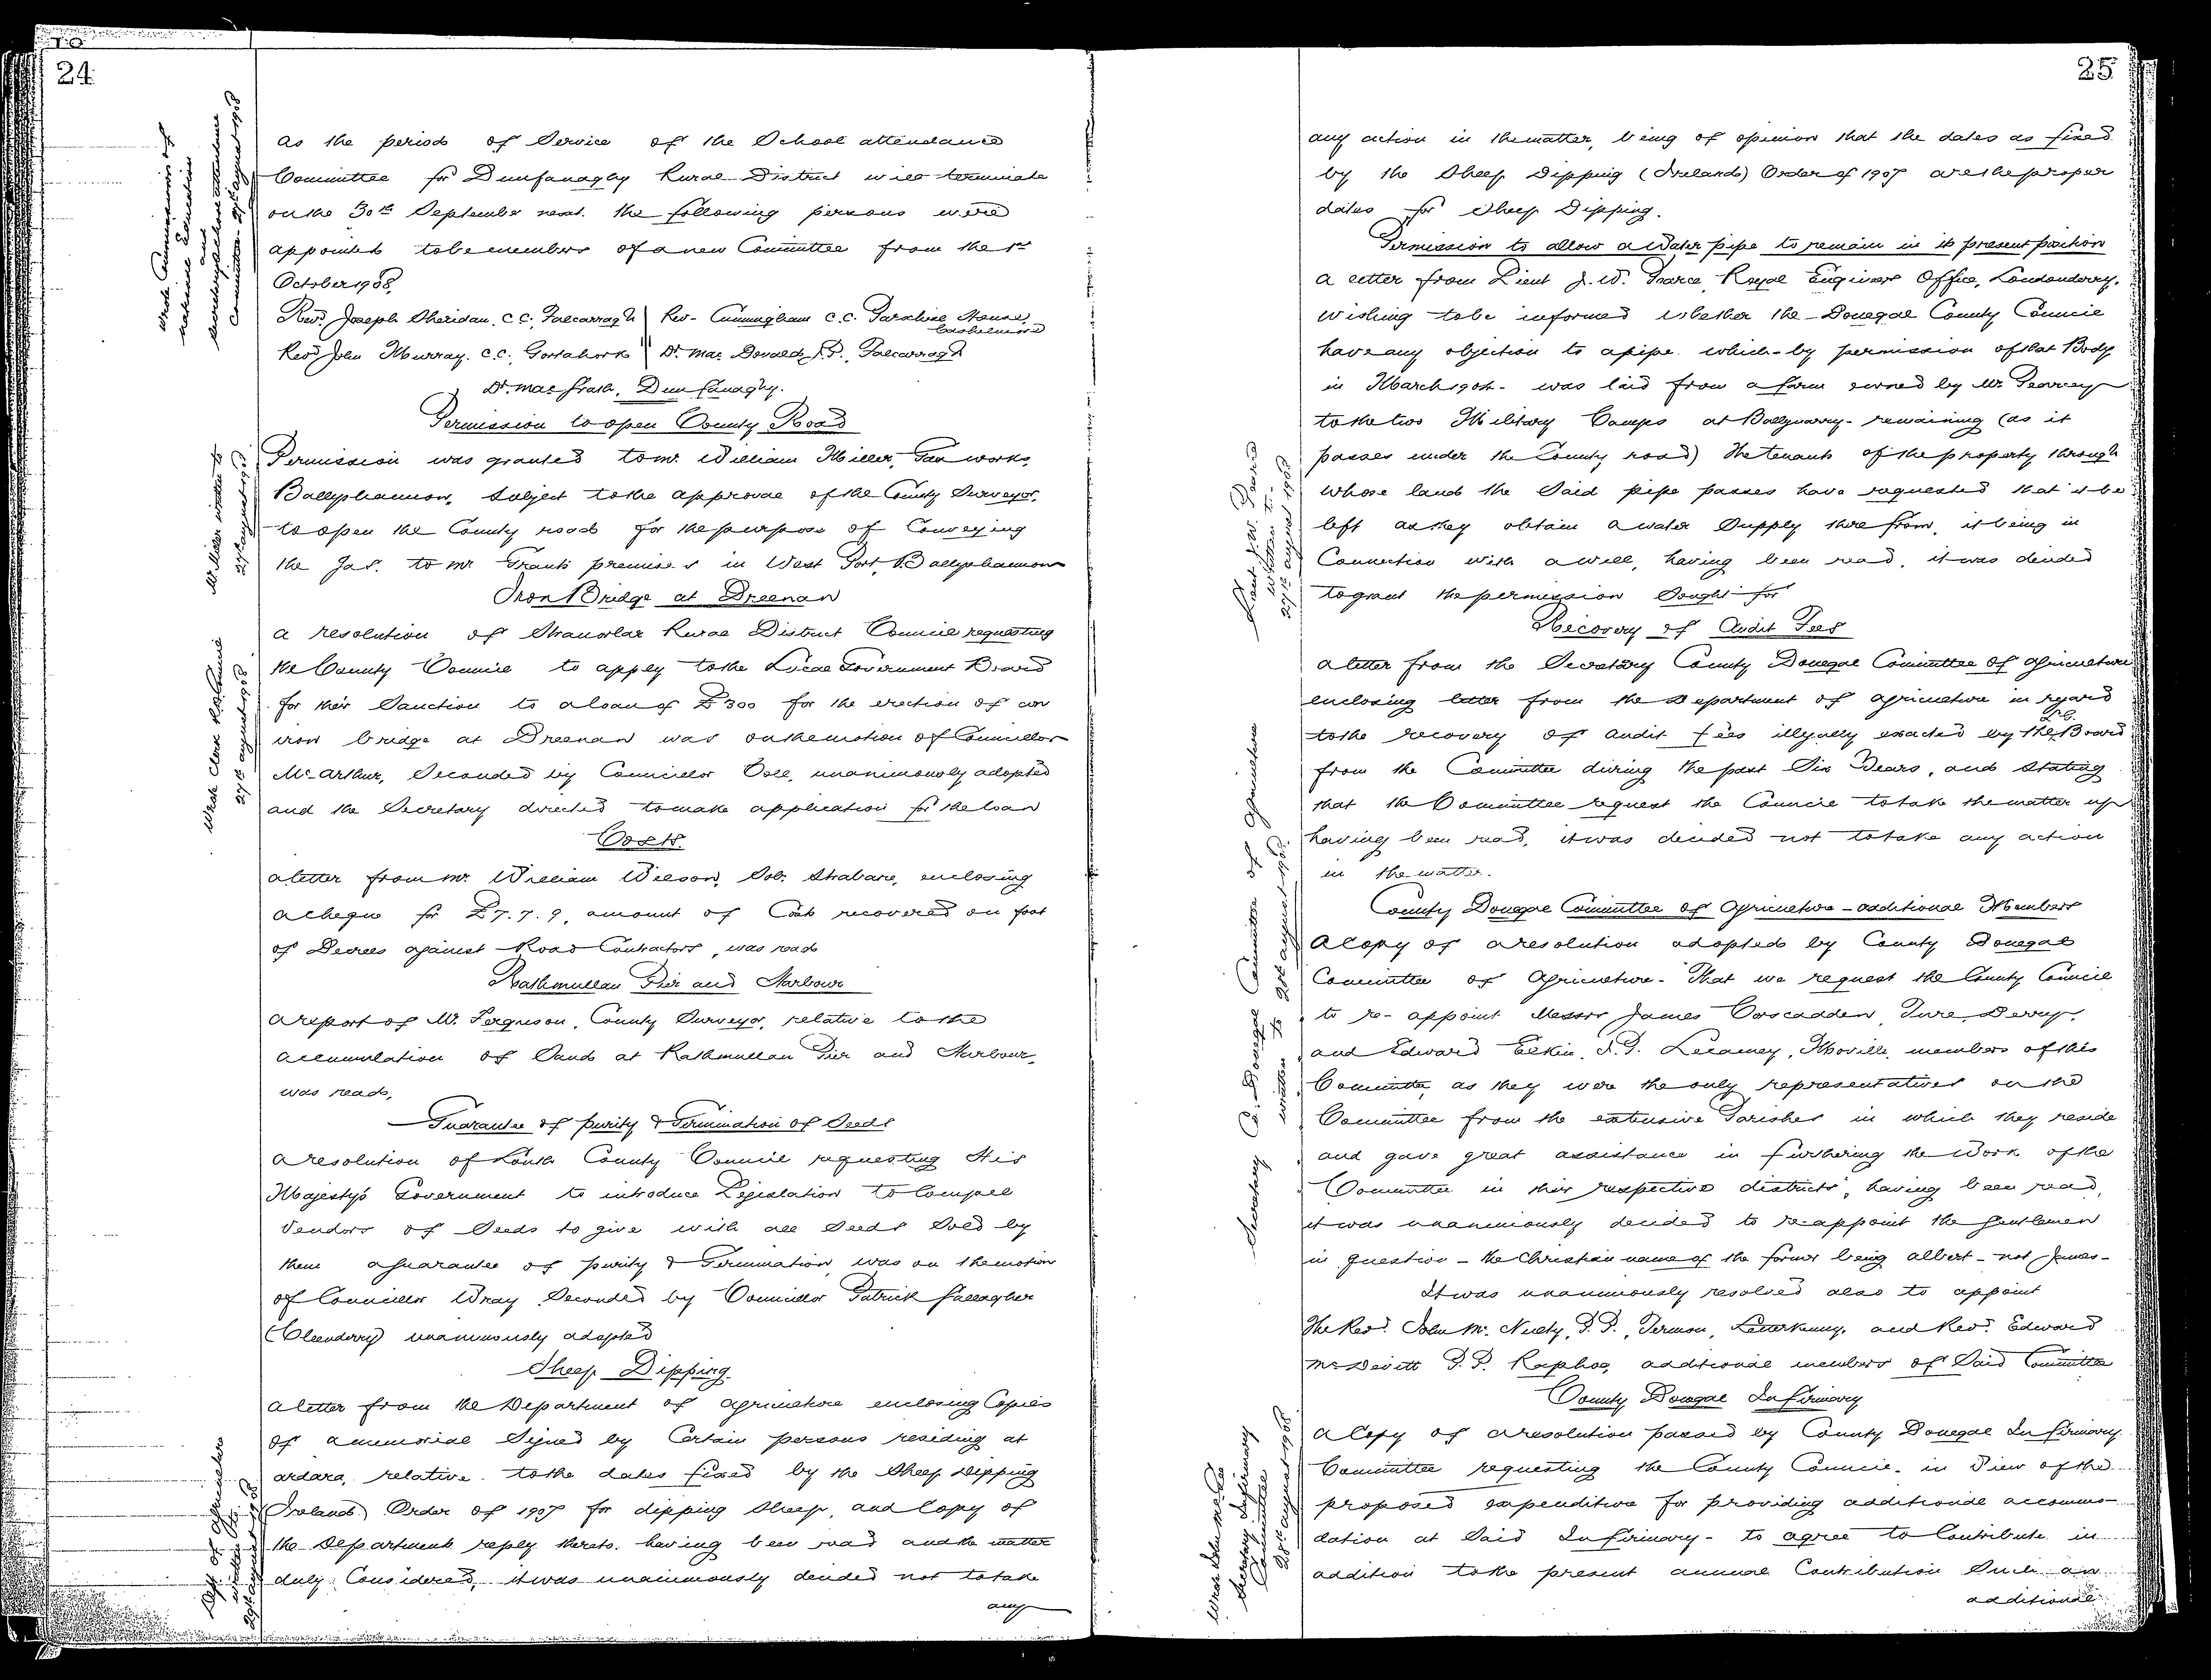 24
Wrote Commissioners of
National Education
and
Secretary School attendance
Committee - 27th august 1908
as the period of Service of the School attendance
Committee for Dunfanaghy Rural District will terminate
on the 30th September next. the following persons were
appointed to be members of a new Committee from the 1st
October 1908.
Revd. Joseph Sheridan. C.C. Falcarragh Rev- Cunningham C.C. Parochial House,
Cashelmore
Revd John Murray. C.C. Gortahork Dr. Mac Donald, J.P., Falcarragh
Dr. Mac Grath. Dunfanaghy.
Permission to open County Road
Mr Miller written to
27th august 1908
Permission was granted to Mr. William Miller, Gas works,
Ballyshannon, Subject to the approval of the County Surveyor,
to open the County road for the purpose of Conveying
the Gas. to Mr Grants premises in West Port, Ballyshannon
Iron Bridge at Dreenan
Wrote Clerk R.D. Council
27th august 1908
a resolution of Stranorlar Rural District Council requesting
the County Council to apply to the Local Government Board
for their Sanction to a loan of £300 for the erection of an
iron bridge at Dreenan was on the motion of Councillor
McArthur, Seconded by Councillor Doll, unanimously adopted
and the Secretary directed to make application for the loan
Costs.
a letter from Mr. William Wilson, Sol: Strabane, enclosing
a cheque for £7.7.9, amount of Costs recovered on foot
of Decrees against Road Contractors, was read
Rathmullan Pier and Harbour
a report of Mr. Ferguson, County Surveyor, relative to the
accumulation of Sand at Rathmullan Pier and Harbour,
was read,
Guarantee of purity & Germination of Seeds
a resolution of Louth County Council requesting His
Majesty's Government to introduce Legislation to Compel
Vendors of Seeds to give with all Seeds Sold by
them a guarantee of purity & Germination, was on the motion
of Councillor Wray Seconded by Councillor Patrick Gallagher
(Cleendra) unanimously adopted
Sheep Dipping
Dept. of Agriculture
written to
29th august 1908
a letter from the Department of agriculture enclosing Copies
of a memorial Signed by Certain persons residing at
ardara, relative to the dates fixed by the Sheep Dipping
(Ireland) Order of 1907 for dipping Sheep, and Copy of
the Departments reply thereto. having been read and the matter
duly Considered, it was unanimously decided not to take
any
25
any action in the matter, being of opinion that the dates as fixed
by the Sheep Dipping (Ireland) Order of 1907 are the proper
dates for Sheep Dipping.
Permission to allow a Water pipe to remain in its present position
Lieut J.W. Pearce
written to
27th august 1908
a letter from Lieut J.W. Pearce, Royal Engineer Office, Londonderry.
wishing to be informed whether the Donegal County Council
have any objection to a pipe which - by permission of that Body
in March 1904 - was laid from a farm owned by Mr
to the two Military Camps at Ballynarry - remaining (as it
passes under the County road) The tenants of the property through
whose land the Said pipe passes have requested that it be
left as they obtain a water Supply there from, it being in
Connection with a well, having been read, it was decided
to grant the permission Sought for
Recovery of Audit Fees
Secretary Co. Donegal Committee of Agriculture
written to 28th august 1908.
a letter from the Secretary County Donegal Committee of Agriculture
enclosing letter from the Department of agriculture in regard
to the recovery of audit fees illegally exacted by the L.G. Board
from the Committee during the past Six Years, and Stating
that the Committee request the Council to take the matter up
having been read, it was decided not to take any action
in the matter.
County Donegal Committee of Agriculture - additional Members
A Copy of a resolution adopted by County Donegal
Committee of Agriculture - "That we request the County Council
to re-appoint Messrs James Cascadden, Ture, Derry,
and Edward Elkin, J.P. Lecamey, Moville, members of this
Committee, as they were the only representatives on the
Committee from the extensive Parishes in which they reside
and gave great assistance in furthering the Work of the
Committee in their respective districts", having been read,
it was unanimously decided to re-appoint the Gentlemen
in question - the Christian name of the former being albert - not James -
It was unanimously resolved also to appoint
The Revd. John Mc. Nulty, P.P., Termon, Letterkenny, and Revd. Edward
McDevitt P.P. Raphoe, additional members of Said Committee
County Donegal Infirmary
Secretary Infirmary
Committee
28th august 1908
A Copy of a resolution passed by County Donegal Infirmary
Committee requesting the County Council - in View of the
proposed expenditure for providing additional accommo-
dation at Said Infirmary - to agree to Contribute in
addition to the present annual Contribution Such an
additional